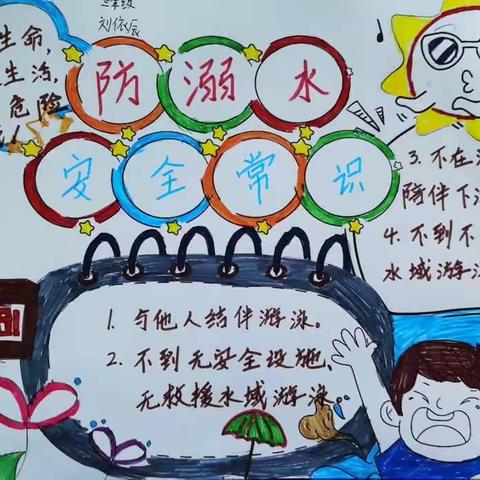 三年级
刘依辰
生命,
生活,
危险
防溺水
安全常识
1. 与他人结伴游泳。
2. 不到无安全设施、
无救援水域游泳。
3. 不在
陪伴下
4. 不到不
水域游